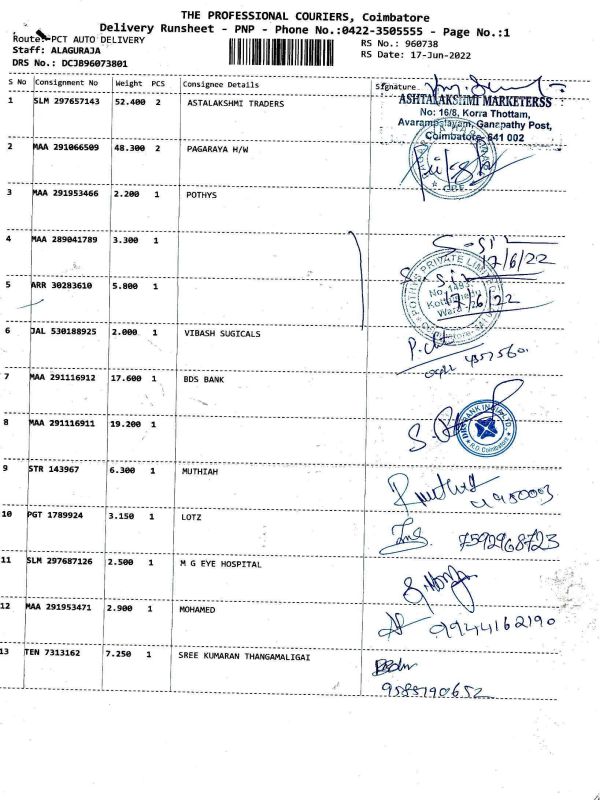 THE PROFESSIONAL COURIERS, Coimbatore
Delivery Runsheet - PNP - Phone No.:0422-3505555 - Page No.:1
Route: PCT AUTO DELIVERY
RS No.: 960738
Staff: ALAGURAJA
RS Date: 17-Jun-2022
DRS No.: DCJB96073801
S No Consignment No Weight PCS Consignee Details Signature
1 SLM 297657143 52.400 2 ASTALAKSHMI TRADERS
ASHTALAKSHMI MARKETERSS
No: 16/8, Korra Thottam,
Avarampalayam, Ganapathy Post,
Coimbatore- 641 002
2 MAA 291066509 48.300 2 PAGARAYA H/W
3 MAA 291953466 2.200 1 POTHYS
4 MAA 289041789 3.300 1
17/6/22
5 ARR 30283610 5.800 1
POTHYS PRIVATE LIMITED
17/6/22
6 JAL 530188925 2.000 1 VIBASH SUGICALS
7 MAA 291116912 17.600 1 BDS BANK
8 MAA 291116911 19.200 1
9 STR 143967 6.300 1 MUTHIAH
10 PGT 1789924 3.150 1 LOTZ
7592968723
11 SLM 297687126 2.500 1 M G EYE HOSPITAL
12 MAA 291953471 2.900 1 MOHAMED
9944162190
13 TEN 7313162 7.250 1 SREE KUMARAN THANGAMALIGAI
9585790652